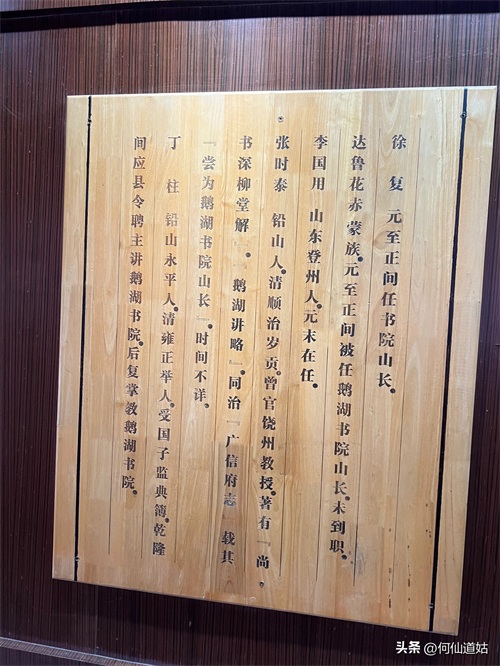 徐 复 元至正间任书院山长。
达鲁花赤 蒙族。元至正间被任鹅湖书院山长。未到职。
李国用 山东登州人。元末在任。
张时泰 铅山人。清顺治岁贡。曾官饶州教授。著有『尚
书深柳堂解』『鹅湖讲略』。同治『广信府志』载其
『尝为鹅湖书院山长』。时间不详。
丁 柱 铅山永平人。清雍正举人。受国子监典簿。乾隆
间应县令聘主讲鹅湖书院。后复掌教鹅湖书院。
头条 @何仙道姑